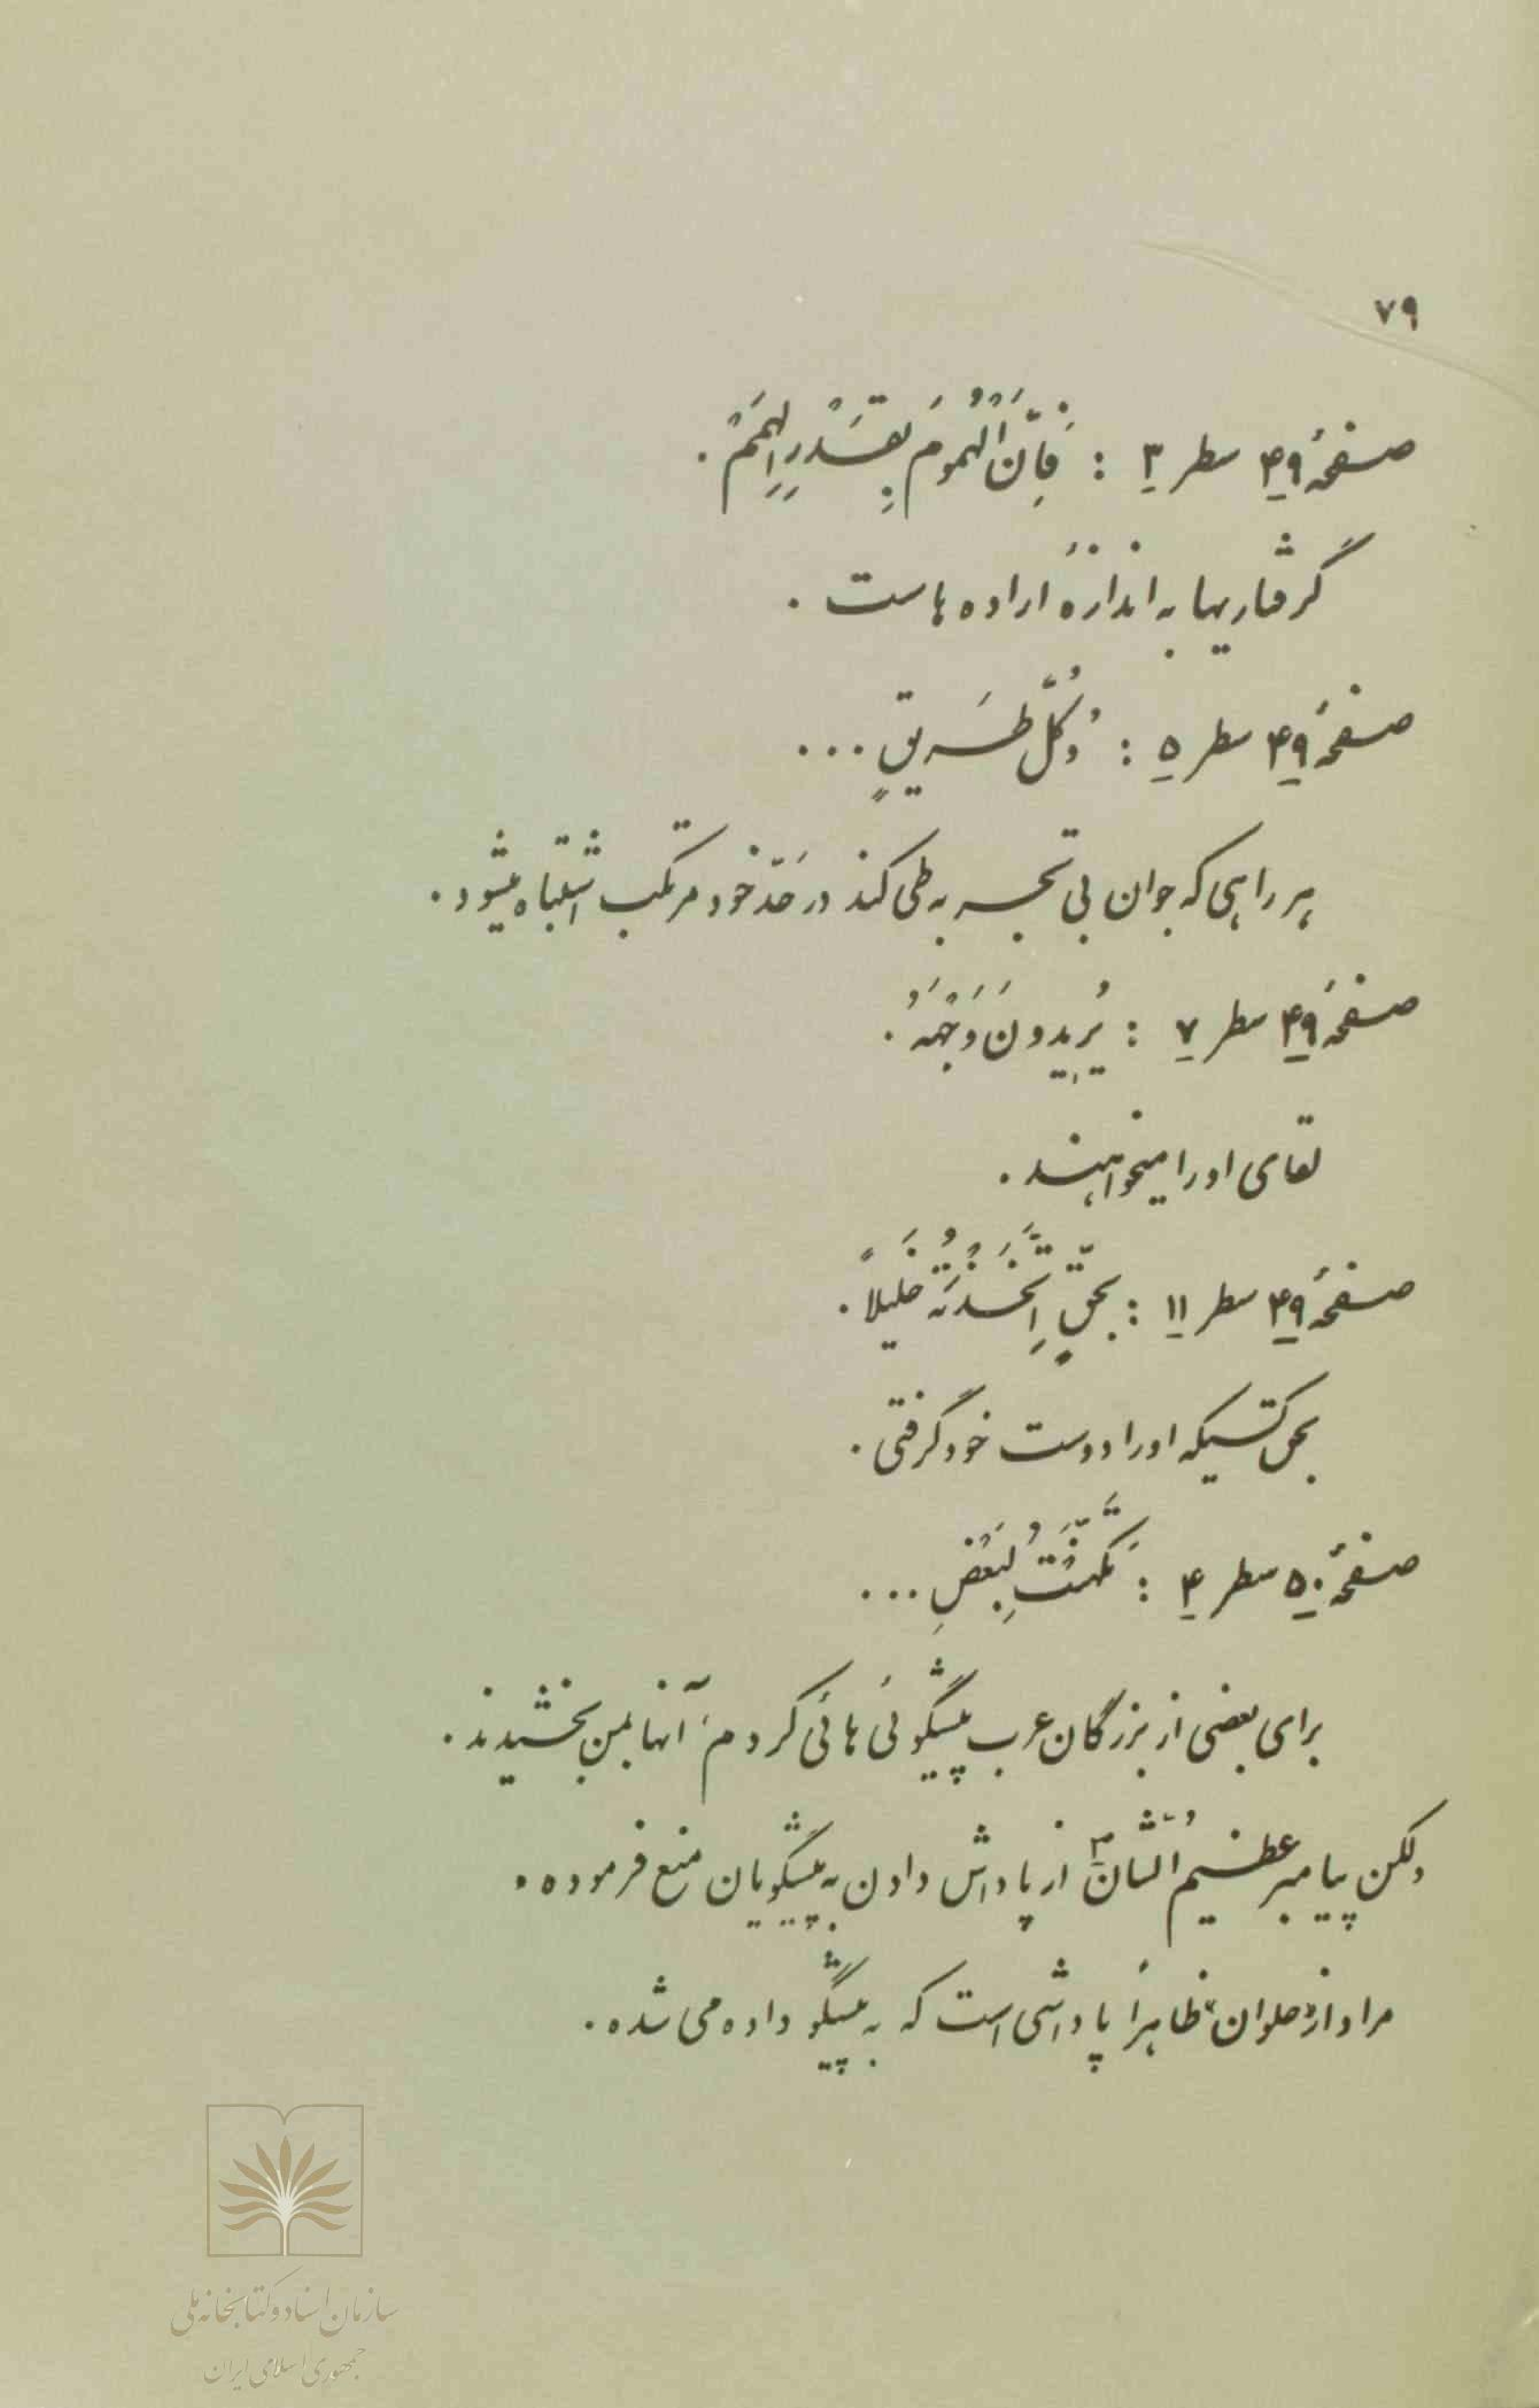 ۷۹
صفحهٔ ۴۹ سطر ۳ : فَاِنَّ الْهُمُومَ بِقَدْرِ الْهِمَمْ .
گرفتاریها به اندازهٔ اراده هاست .
صفحهٔ ۴۹ سطر ۵ : وَکُلُّ طَریقٍ ...
هر راهی که جوان بی تجربه طی کند در حَدّ خود مرتکب اشتباه میشود .
صفحهٔ ۴۹ سطر ۷ : یُریِدونَ وَجْهَهُ .
لقای او را میخواهند .
صفحهٔ ۴۹ سطر ۱۱ : بحقّ اِتَّخَذْتَهُ خَلیلاً .
بحق کسیکه او را دوست خود گرفتی .
صفحهٔ ۵۰ سطر ۴ : تَکَهَّنْتُ لِبَعْضِ ...
برای بعضی از بزرگان عرب پیشگوئی هائی کردم ، آنها بمن بخشیدند .
ولکن پیامبر عظیمُ الشّان ص از پاداش دادن به پیشگویان منع فرموده .
مراد از «حلوان» ظاهراً پاداشی است که به پیشگو داده می شده .
سازمان اسناد و کتابخانه ملی
جمهوری اسلامی ایران